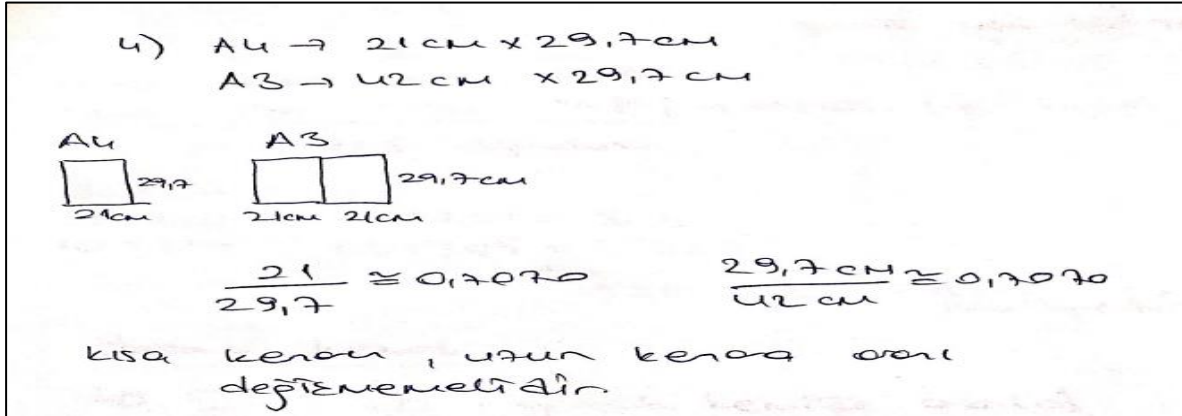 4) A4 → 21 cm x 29,7 cm
A3 → 42 cm x 29,7 cm
A4 A3
29,7 29,7 cm
21cm 21cm 21cm
21/29,7 ≅ 0,7070 29,7 cm/42 cm ≅ 0,7070
kısa kenarı, uzun kenara oranı
değişmemelidir.